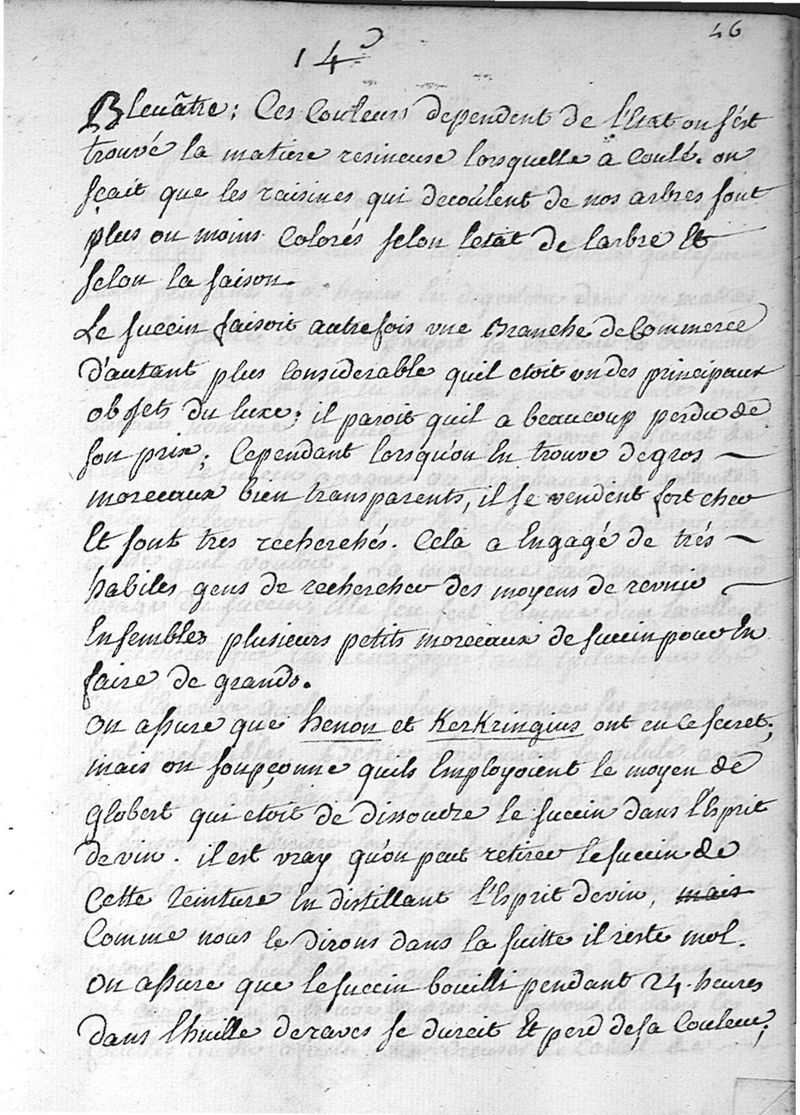 46
14
Bleuâtre; Ces Couleurs dependent de l'Etat ou s'est
trouvé la matiere resineuse lorsquelle à Coulé. on
sçait que les raisines qui decoulent de nos arbres sont
plus ou moins Colorés selon l'etat de l'arbre Et
selon la saison.
Le succin faisoit autrefois une Branche de Commerce
D'autant plus Considerable quil etoit un des principaux
objets du luxe; il paroit quil a beaucoup perdu de
son prix; Cependant lorsqu'on En trouve de gros
morceaux bien transparents, il se vendent fort cher
Et sont tres recherchés. Cela a Engagé de trés
habiles gens de rechercher des moyens de reunir
Ensembles plusieurs petits morceaux de succin pour En
faire de grands.
on assure que henon et KerKringius ont eu ce secret;
mais on soupçonne quils Employoient le moyen de
globert qui etoit de dissoudre le succin dans l'Esprit
de vin. il est vray qu'on peut retirer le succin de
Cette teinture En distillant l'Esprit de vin, mais
Comme nous le dirons dans la suitte il reste mol.
on assure que le succin bouilli pendant 24. heures
dans l'huille de raves se durcit Et perd de sa Couleur;